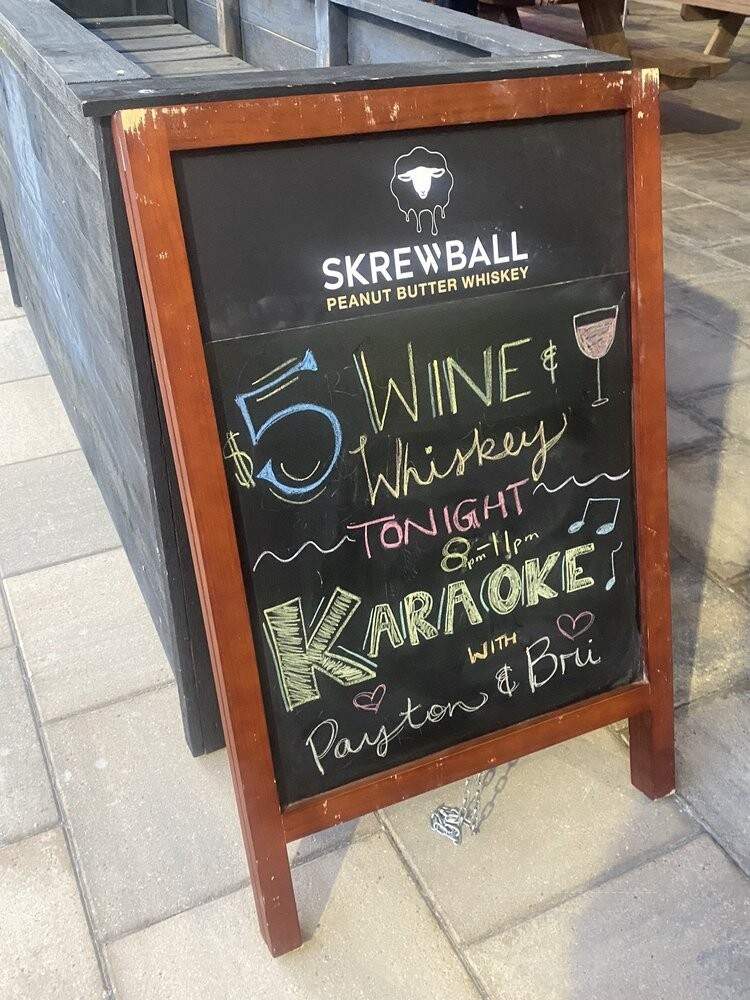 SKREWBALL
PEANUT BUTTER WHISKEY
$5 WINE &
Whiskey
TONIGHT
8pm-11pm
KARAOKE
WITH
Payton & Bri